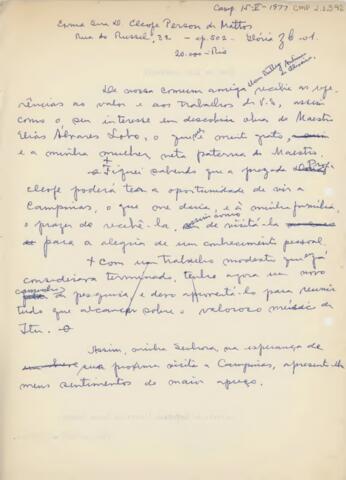 Camp. 15-II-1977 CMP 2.5.392
Exma Sra D. Cleofe Person de Mattos
Rua do Russel, 32 - ap. 502 - Glória Zb-01.
20.000-Rio
De nossa comum amiga recebi as refe-
rências ao valor e aos trabalhos de V.S., assim
como o seu interesse em descobrir obra do Maestro
Elias Alvares Lobo, o que é muito grato,
e a minha mulher, neta paterna do Maestro.
+ Fiquei sabendo que a prezada Profª
Cleofe poderá ter a oportunidade de vir a
Campinas, o que me daria, e à minha família,
o prazer de recebê-la, assim como de visitá-la
para a alegria de um conhecimento pessoal.
+ Com um trabalho modesto que já
considerava terminado, tenho agora um novo
caminho de pesquisa e devo aproveitá-lo para reunir
tudo que alcançar sobre o valoroso músico de
Itu.
Assim, minha Senhora, na esperança de
sua proxima visita a Campinas, apresento-lhe
meus sentimentos de maior apreço.